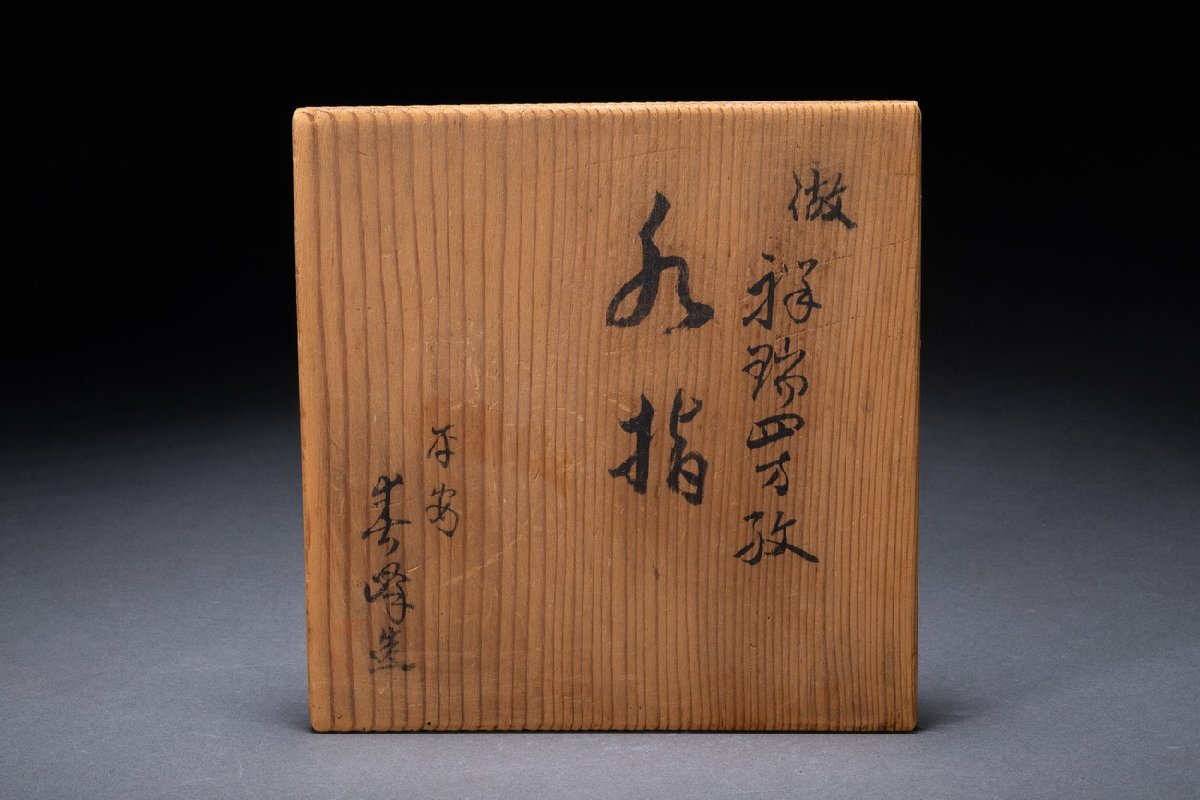 倣祥瑞四方
水指
平安
春峰造